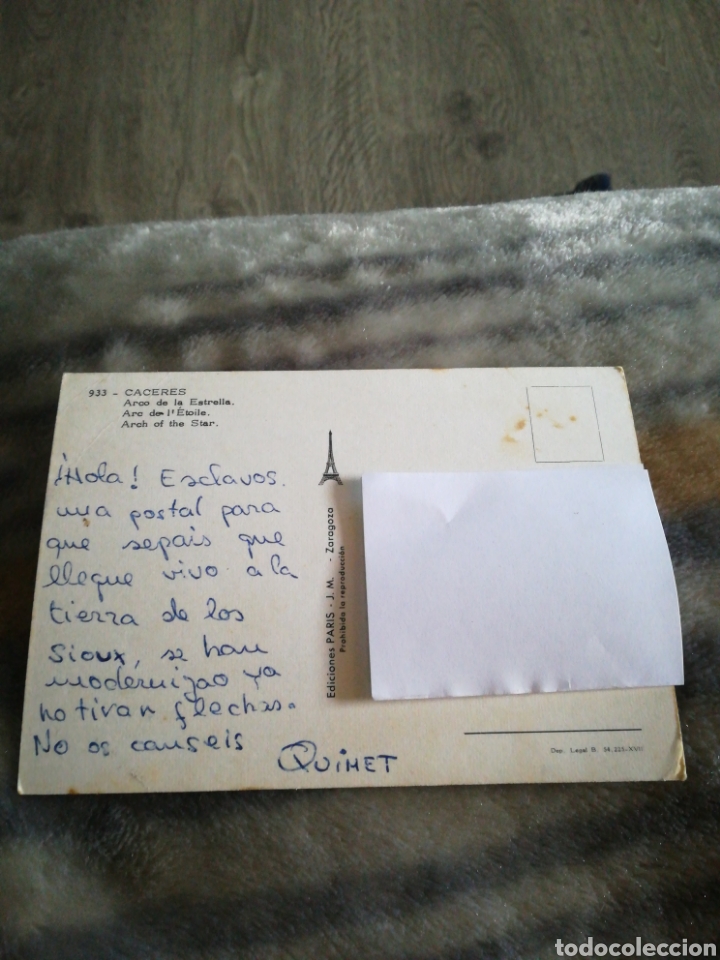 933 - CACERES
Arco de la Estrella.
Arc de l'Étoile.
Arch of the Star.
¡Hola! Esclavos.
una postal para
que sepais que
llegue vivo a la
tierra de los
Sioux, se han
modernizao ya
no tiran flechas.
No os canseis
QUIMET
Ediciones PARIS - J. M. - Zaragoza
Prohibida la reproducción
Dep. Legal B. 34.225-XVII
todocoleccion